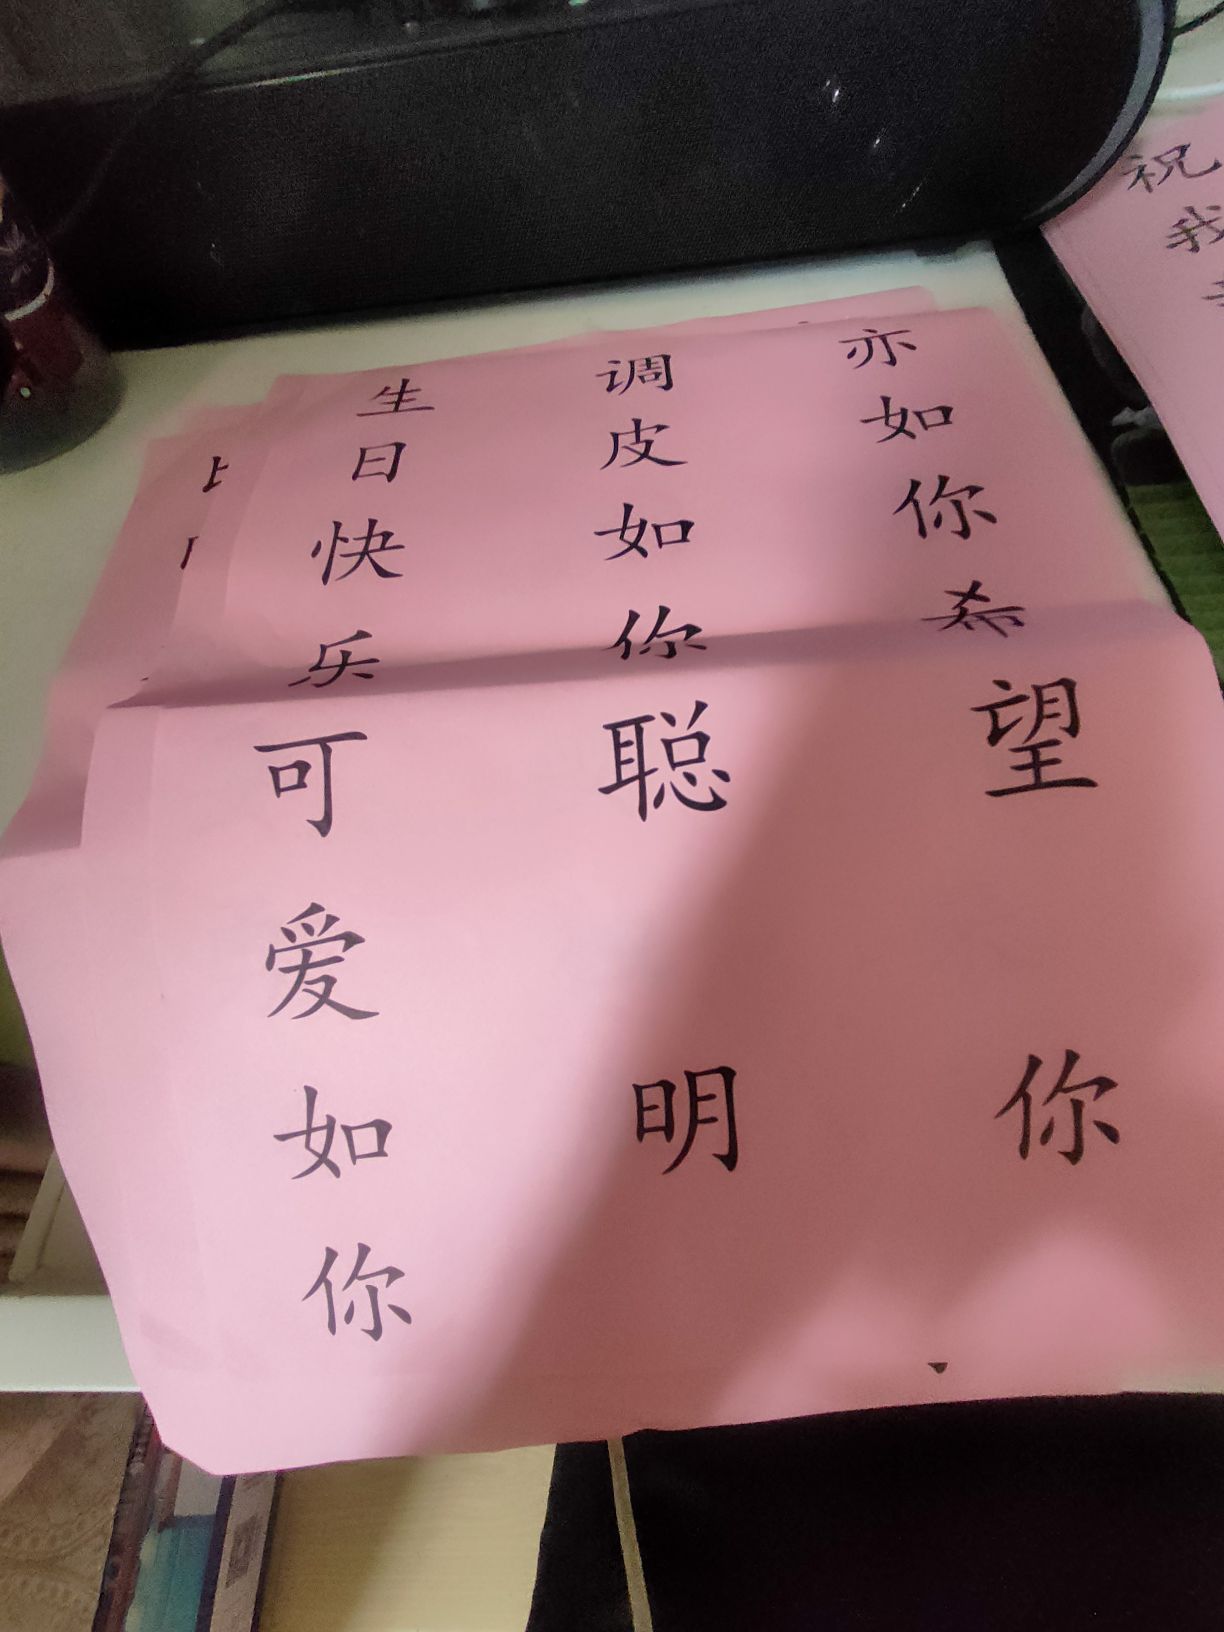 生日快乐可爱如你
调皮如你聪明
亦如你希望你
祝
我